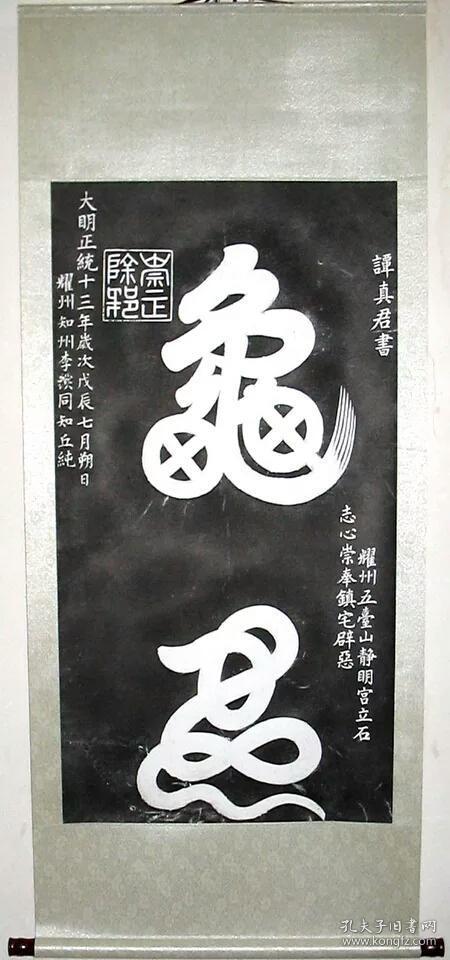 譚真君書
龜
耀州五臺山静明宮立石
志心崇奉鎮宅辟惡
崇正
除邪
大明正統十三年歲次戊辰七月朔日
耀州知州李同知丘純
孔夫子旧书网
www.kongfz.com